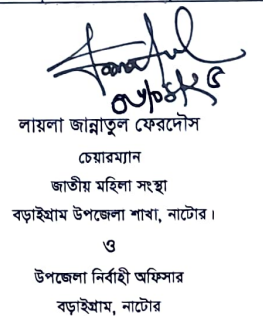 লায়লা জান্নাতুল ফেরদৌস
চেয়ারম্যান
জাতীয় মহিলা সংস্থা
বড়াইগ্রাম উপজেলা শাখা, নাটোর।
ও
উপজেলা নির্বাহী অফিসার
বড়াইগ্রাম, নাটোর